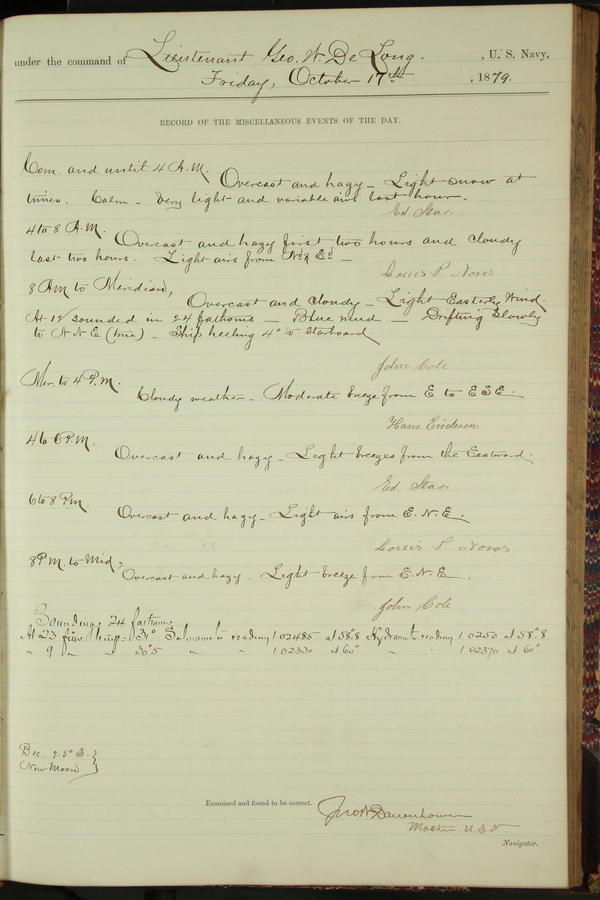 under the command of Lieutenant Geo. W. De Long. , U. S. Navy,
Friday, October 17th , 1879.
RECORD OF THE MISCELLANEOUS EVENTS OF THE DAY.
Com. and until 4 A.M. Overcast and hazy – Light snow at
times. Calm – Very light and variable airs last hour.
Ed. Starr.
4 to 8 A.M. Overcast and hazy first two hours and cloudy
last two hours. Light airs from N & E –
Louis P. Noros
8 AM to Meridian, Overcast and Cloudy – Light Easterly Wind.
At 12 sounded in 24 fathoms – Blue mud – Drifting Slowly
to N N E (true) – Ship heeling 4° to Starboard.
John Cole
Mer. to 4 P.M. Cloudy weather – Moderate breeze from E to ESE.
Hans Ericksen
4 to 6 P.M. Overcast and hazy – Light breezes from the Eastward.
Ed. Starr.
6 to 8 P.M. Overcast and hazy – Light airs from E.N.E.
Louis P. Noros
8 P.M. to Mid, Overcast and hazy – Light breeze from E.N.E.
John Cole
Sounding 24 fathoms
At 23 fms temp = 31° Salinometer reading 1.02485 at 58°.8 Hydrometer reading 1.0250 at 58°.8
" 9 " " 30°5 " " 1.02330 at 60° " " 1.02370 at 60°
Dec. S. –
New Moon
Examined and found to be correct. Jno W Danenhower
Master U.S.N.
Navigator.